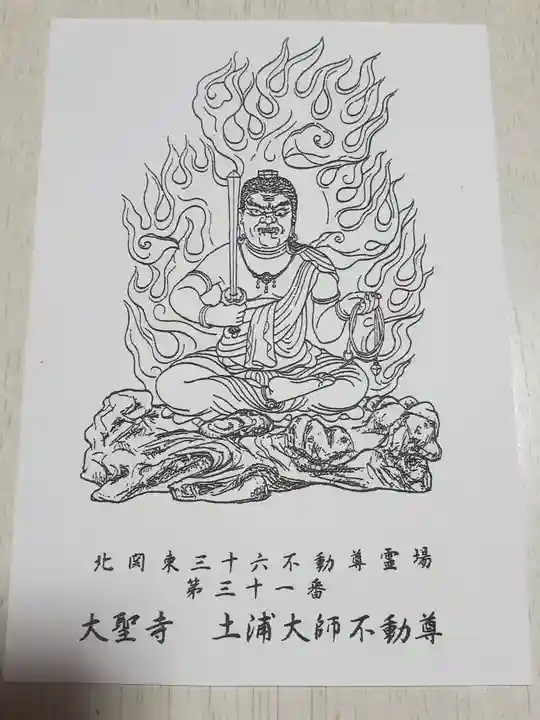 北関東三十六不動尊霊場
第三十一番
大聖寺 土浦大師不動尊